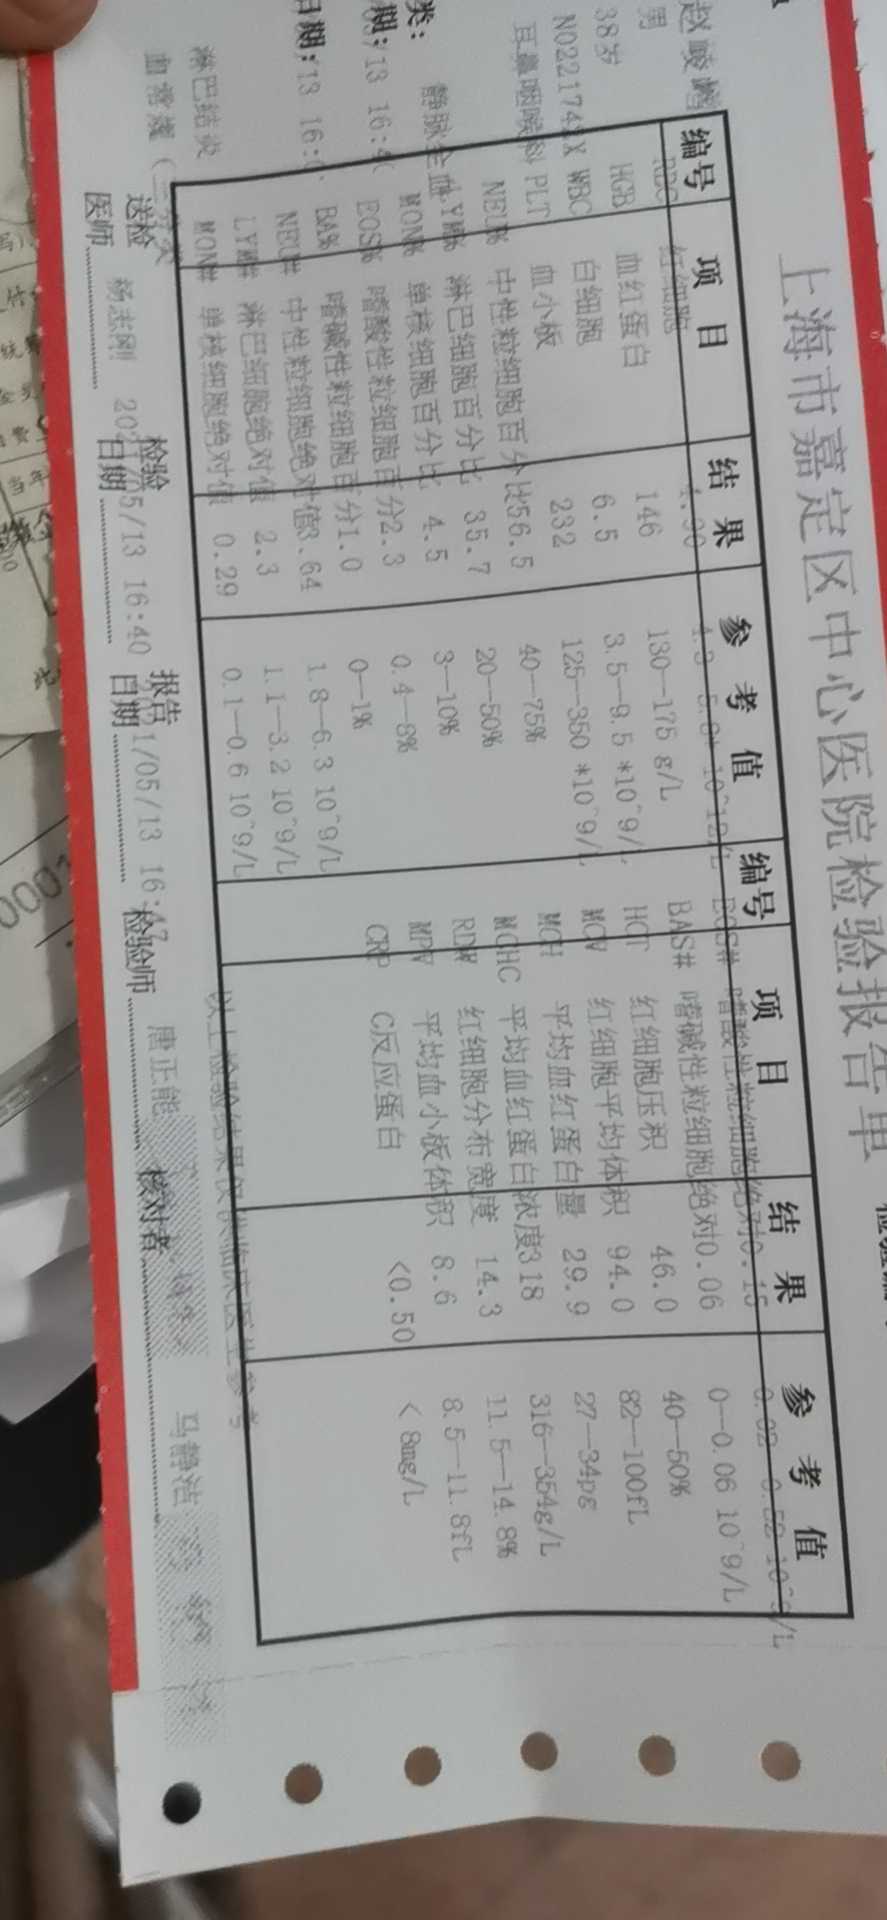 上海市嘉定区中心医院检验报告单
男
38岁
耳鼻咽喉科
类: 静脉全血
期: /13 16:4
日期: /13 16:
淋巴结炎
血常规(
编号 项目 结果 参考值 编号 项目 结果 参考值
RBC 红细胞 4.90 EOS# 嗜酸性粒细胞绝对0.15
HGB 血红蛋白 146 130—175 g/L BAS# 嗜碱性粒细胞绝对0.06 0—0.06 10^9/L
WBC 白细胞 6.5 3.5—9.5 *10^9/L HCT 红细胞压积 46.0 40—50%
PLT 血小板 232 125—350 *10^9/L MCV 红细胞平均体积 94.0 82—100fL
NEU% 中性粒细胞百分比56.5 40—75% MCH 平均血红蛋白量 29.9 27—34pg
LYM% 淋巴细胞百分比 35.7 20—50% MCHC 平均血红蛋白浓度318 316—354g/L
MON% 单核细胞百分比 4.5 3—10% RDW 红细胞分布宽度 14.3 11.5—14.8%
EOS% 嗜酸性粒细胞百分2.3 0.4—8% MPV 平均血小板体积 8.6 8.5—11.8fL
BA% 嗜碱性粒细胞百分1.0 0—1% CRP C反应蛋白 <0.50 < 8mg/L
NEU# 中性粒细胞绝对值3.64 1.8—6.3 10^9/L
LYM# 淋巴细胞绝对值 2.3 1.1—3.2 10^9/L
MON# 单核细胞绝对值 0.29 0.1—0.6 10^9/L
以上检验结果仅供临床医生参考
送检医师 杨志刚 检验日期 2021/05/13 16:40 报告日期 1/05/13 16:47 检验师 唐正能 核对者 马静洁